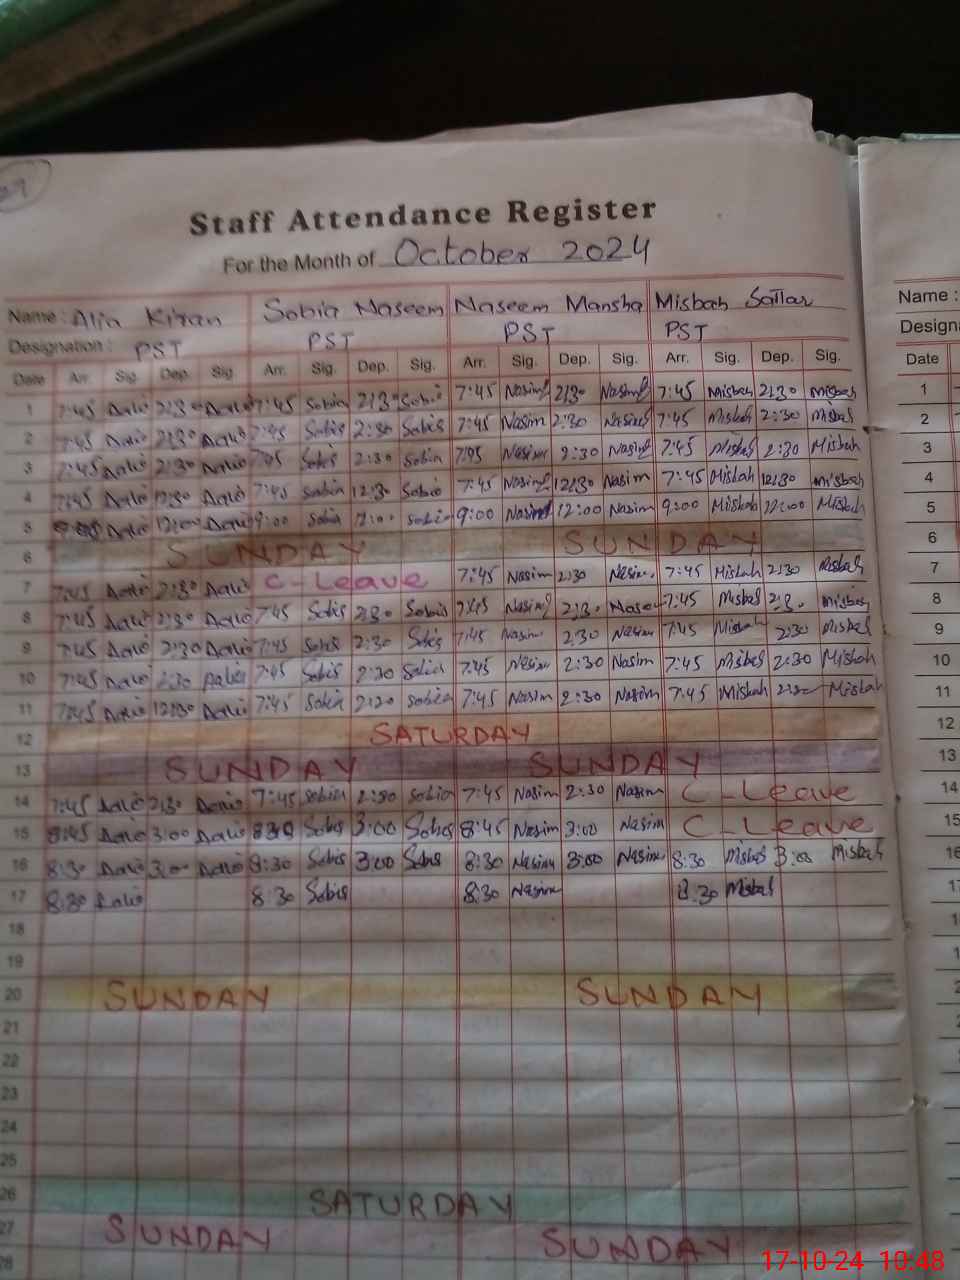 Staff Attendance Register
For the Month of October 2024
Name : Alia Kiran Sobia Naseem Naseem Mansha Misbah Sattar Name :
Designation : PST PST PST PST
Date Arr. Sig. Dep. Sig. Arr. Sig. Dep. Sig. Arr. Sig. Dep. Sig. Arr. Sig. Dep. Sig. Date
1 7:45 2:30 7:45 Sobia 2:30 Sobia 7:45 Nasim 2:30 Nasim 7:45 Misbah 2:30 Misbah 1
2 7:45 2:30 7:45 Sobia 2:30 Sobia 7:45 Nasim 2:30 Nasim 7:45 Misbah 2:30 Misbah 2
3 7:45 2:30 7:45 Sobia 2:30 Sobia 7:45 Nasim 2:30 Nasim 7:45 Misbah 2:30 Misbah 3
4 7:45 12:30 7:45 Sobia 12:30 Sobia 7:45 Nasim 12:30 Nasim 7:45 Misbah 12:30 Misbah 4
5 12:00 9:00 Sobia 12:00 Sobia 9:00 Nasim 12:00 Nasim 9:00 Misbah 12:00 Misbah 5
6 SUNDAY SUNDAY 6
7 7:45 2:30 C-Leave 7:45 Nasim 2:30 Nasim 7:45 Misbah 2:30 Misbah 7
8 7:45 2:30 7:45 Sobia 2:30 Sobia 7:45 Nasim 2:30 7:45 Misbah 2:30 Misbah 8
9 7:45 2:30 7:45 Sobia 2:30 Sobia 7:45 Nasim 2:30 Nasim 7:45 Misbah 2:30 Misbah 9
10 7:45 2:30 7:45 Sobia 2:30 Sobia 7:45 Nasim 2:30 Nasim 7:45 Misbah 2:30 Misbah 10
11 7:45 12:30 7:45 Sobia Sobia 7:45 Nasim 2:30 Nasim 7:45 Misbah Misbah 11
12 SATURDAY 12
13 SUNDAY SUNDAY 13
14 7:45 2:30 7:45 Sobia 2:30 Sobia 7:45 Nasim 2:30 Nasim C-Leave 14
15 8:45 3:00 Sobia 3:00 Sobia 8:45 Nasim 3:00 Nasim C-Leave 15
16 8:30 3:00 8:30 Sobia 3:00 Sobia 8:30 Nasim 3:00 Nasim 8:30 Misbah 3:00 Misbah 16
17 8:30 8:30 Sobia 8:30 Nasim 8:30 Misbah
18
19
20 SUNDAY SUNDAY
21
22
23
24
25
26 SATURDAY
27 SUNDAY SUNDAY
28
17-10-24 10:48